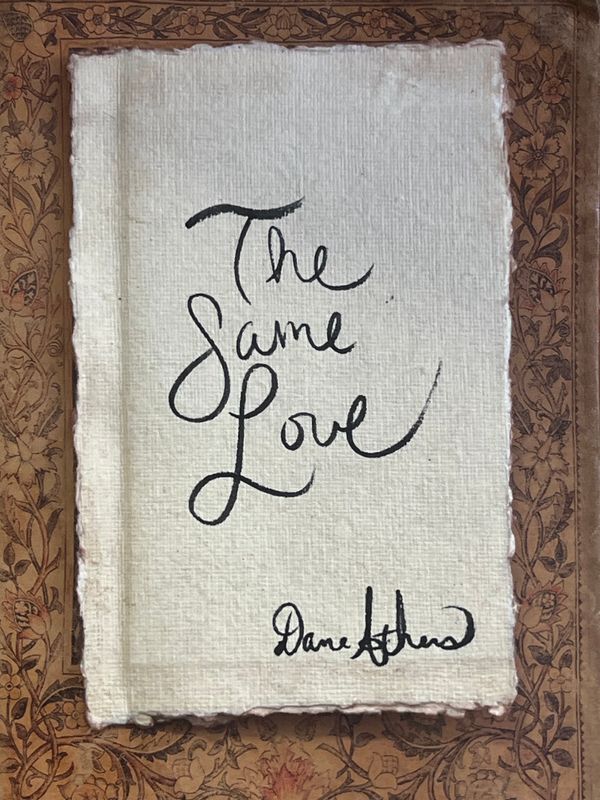 The
Same
Love
Dane Athens